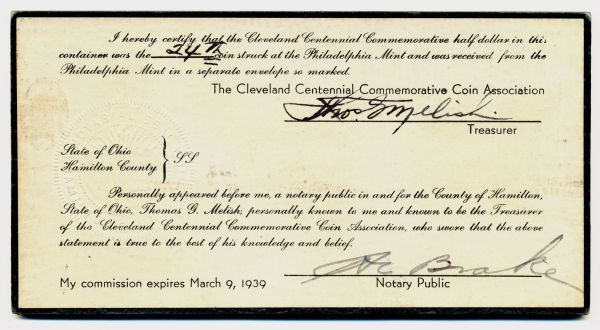 I hereby certify that the Cleveland Centennial Commemorative half dollar in this
container was the 24th coin struck at the Philadelphia Mint and was received from the
Philadelphia Mint in a separate envelope so marked.
The Cleveland Centennial Commemorative Coin Association
Thos. G Melish.
Treasurer
State of Ohio
Hamilton County } SS
Personally appeared before me, a notary public in and for the County of Hamilton,
State of Ohio, Thomas G. Melish, personally known to me and known to be the Treasurer
of the Cleveland Centennial Commemorative Coin Association, who swore that the above
statement is true to the best of his knowledge and belief.
Brake
My commission expires March 9, 1939
Notary Public